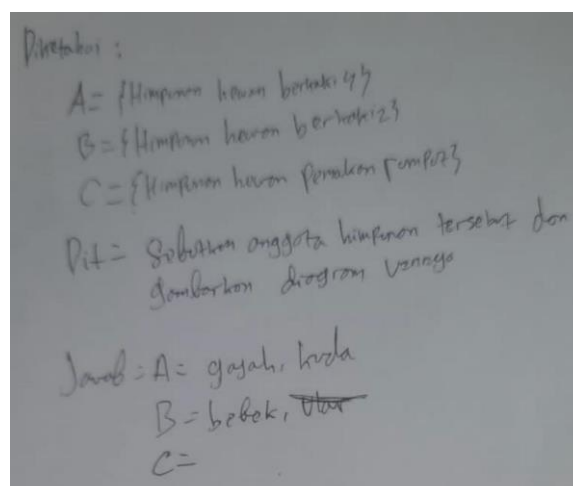 Diketahui :
A = {Himpunan hewan berkaki 4}
B = {Himpunan hewan berkaki 2}
C = {Himpunan hewan pemakan rumput}
Dit = Sebutkan anggota himpunan tersebut dan
gambarkan diagram vennya
Jawab = A = gajah, kuda
B = bebek, ular
C =